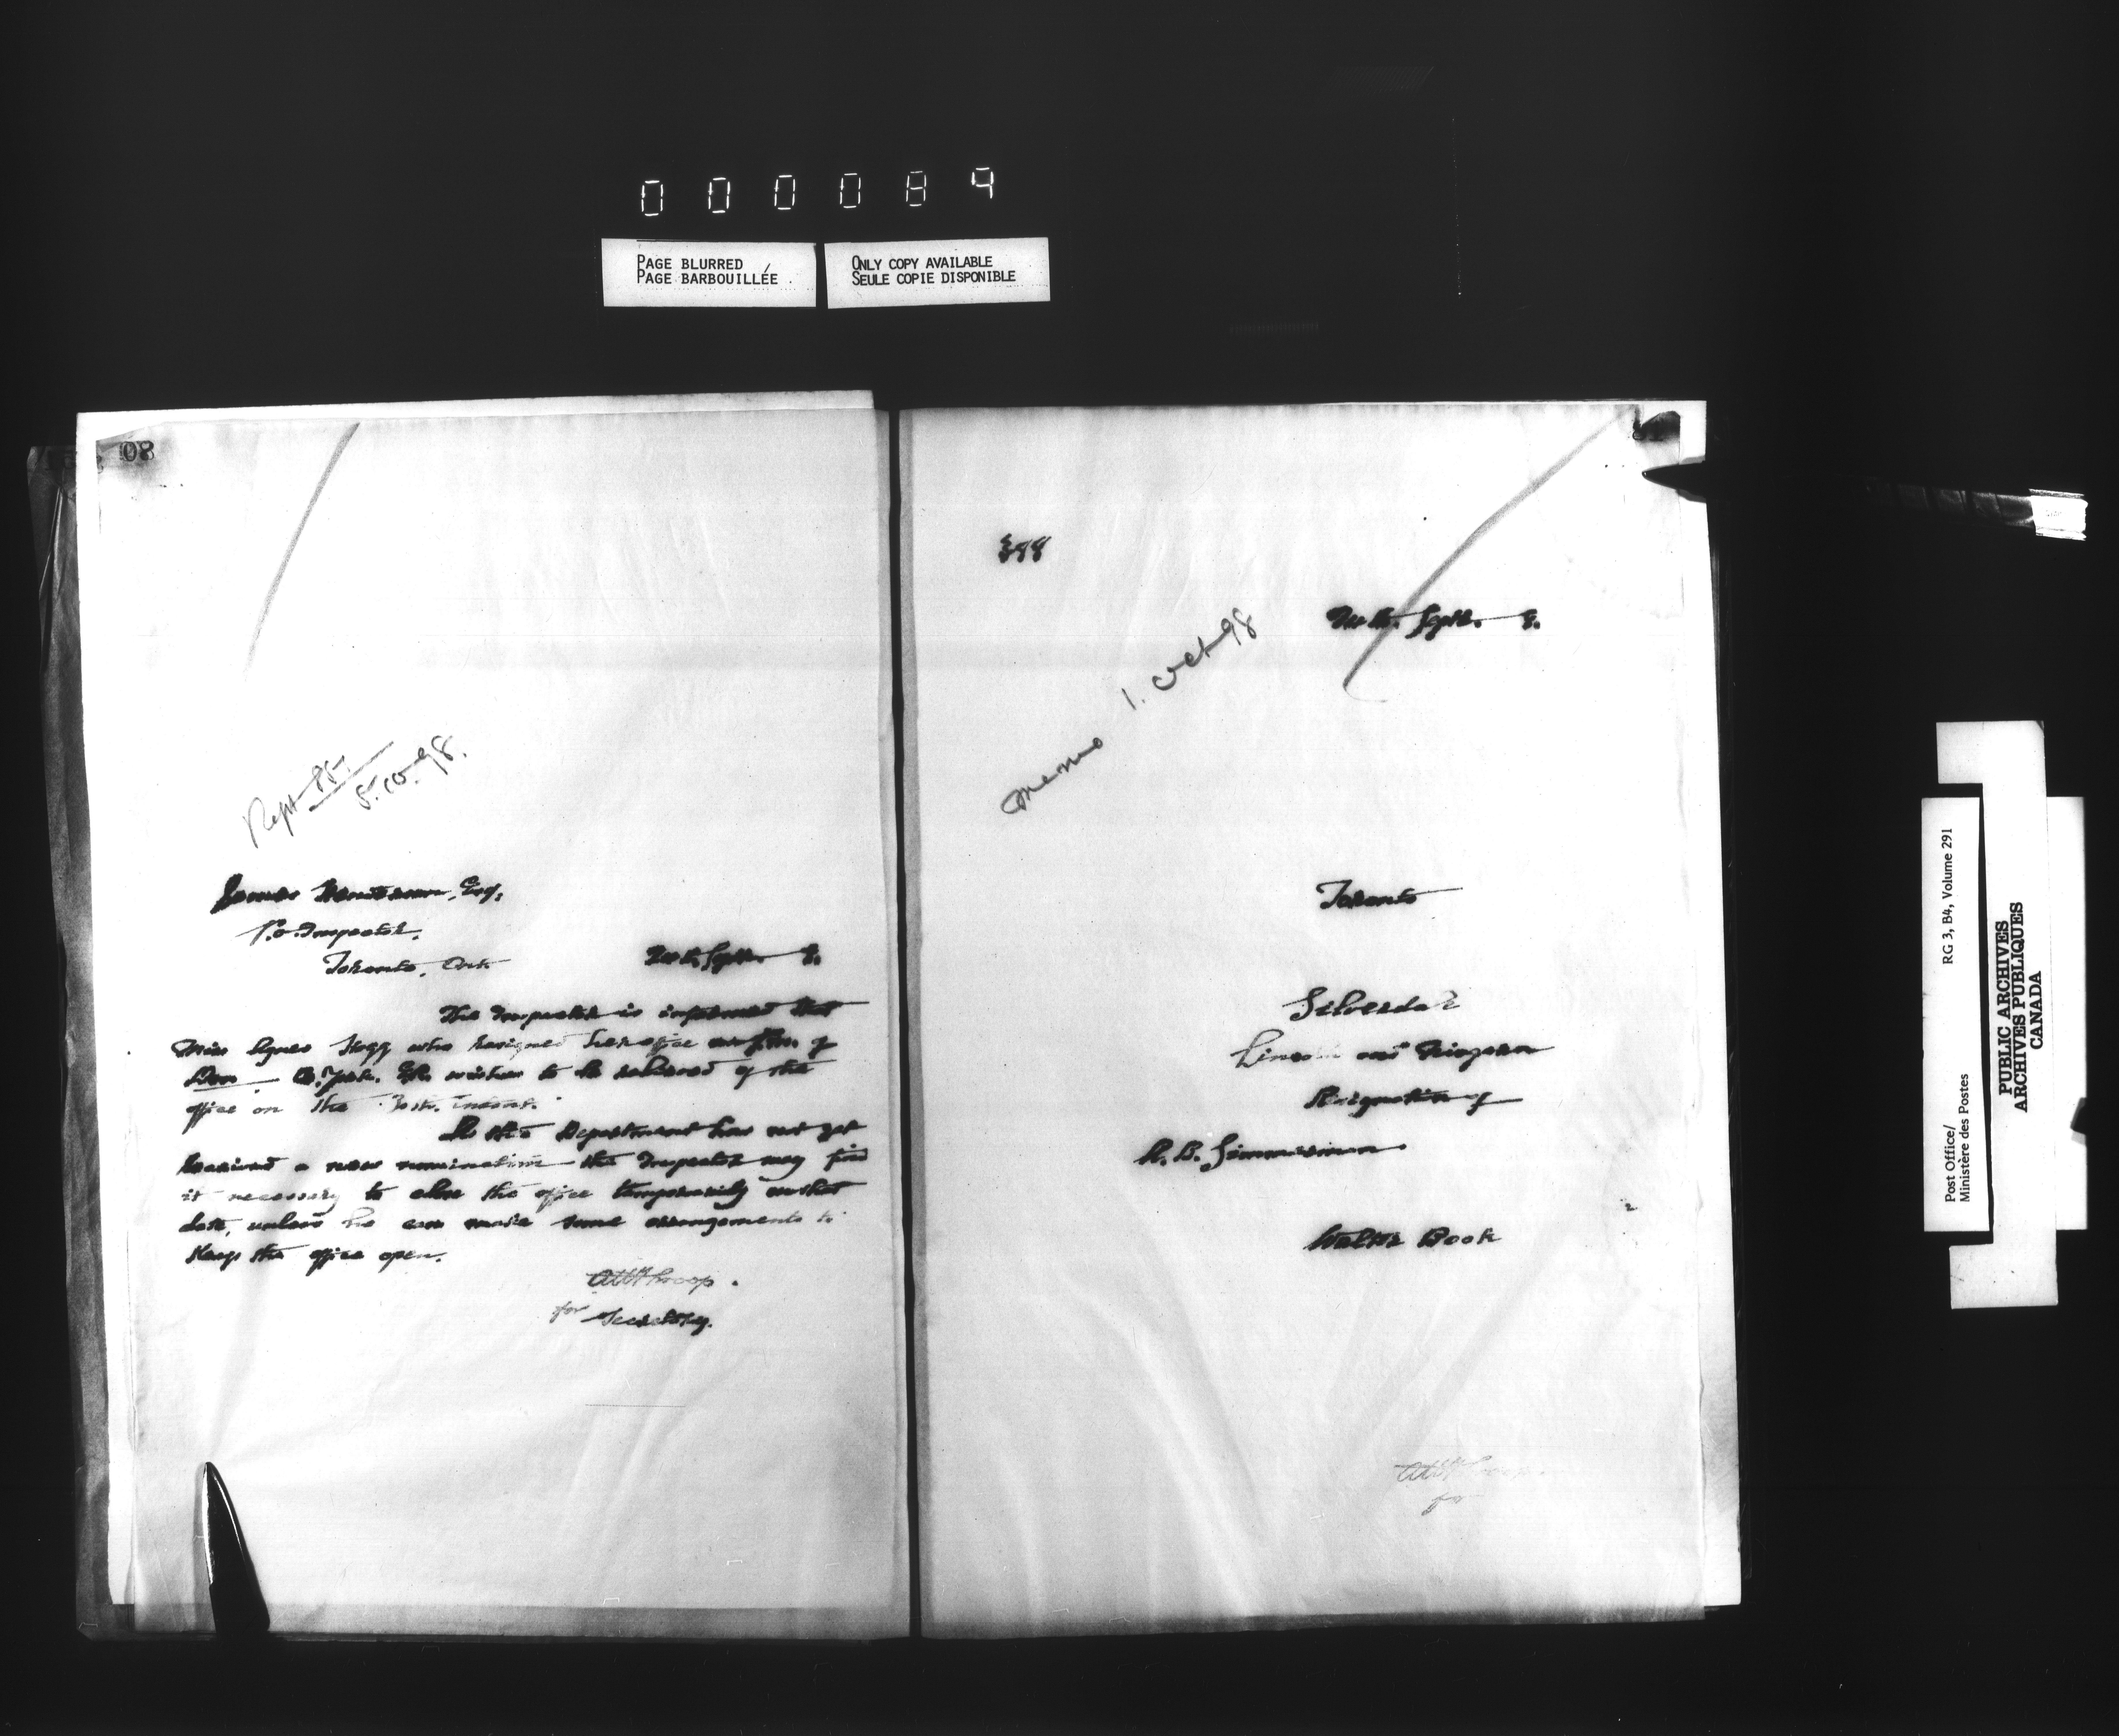 000084
PAGE BLURRED
PAGE BARBOUILLÉE
ONLY COPY AVAILABLE
SEULE COPIE DISPONIBLE
80
Rept
5.10.98.
James Henderson, Esq.
P.O. Inspector.
Toronto, Ont
Septr. 8.
The Inspector is informed that
Miss Agnes Hogg who resigned her office as P.M. of
Don E. York. Ont. wishes to be relieved of the
office on the 30th. Instant.
As the Department has not yet
received a new nomination the Inspector may find
it necessary to close the office temporarily on that
date, unless he can make some arrangements to
keep the office open.
for Secretary.
Septr. 8.
Memo 1. Oct 98
Toronto
Silverdale
Lincoln and Niagara
Resignation of
Walter Book
for
Post Office/
Ministère des Postes
RG 3, B4, Volume 291
PUBLIC ARCHIVES
ARCHIVES PUBLIQUES
CANADA